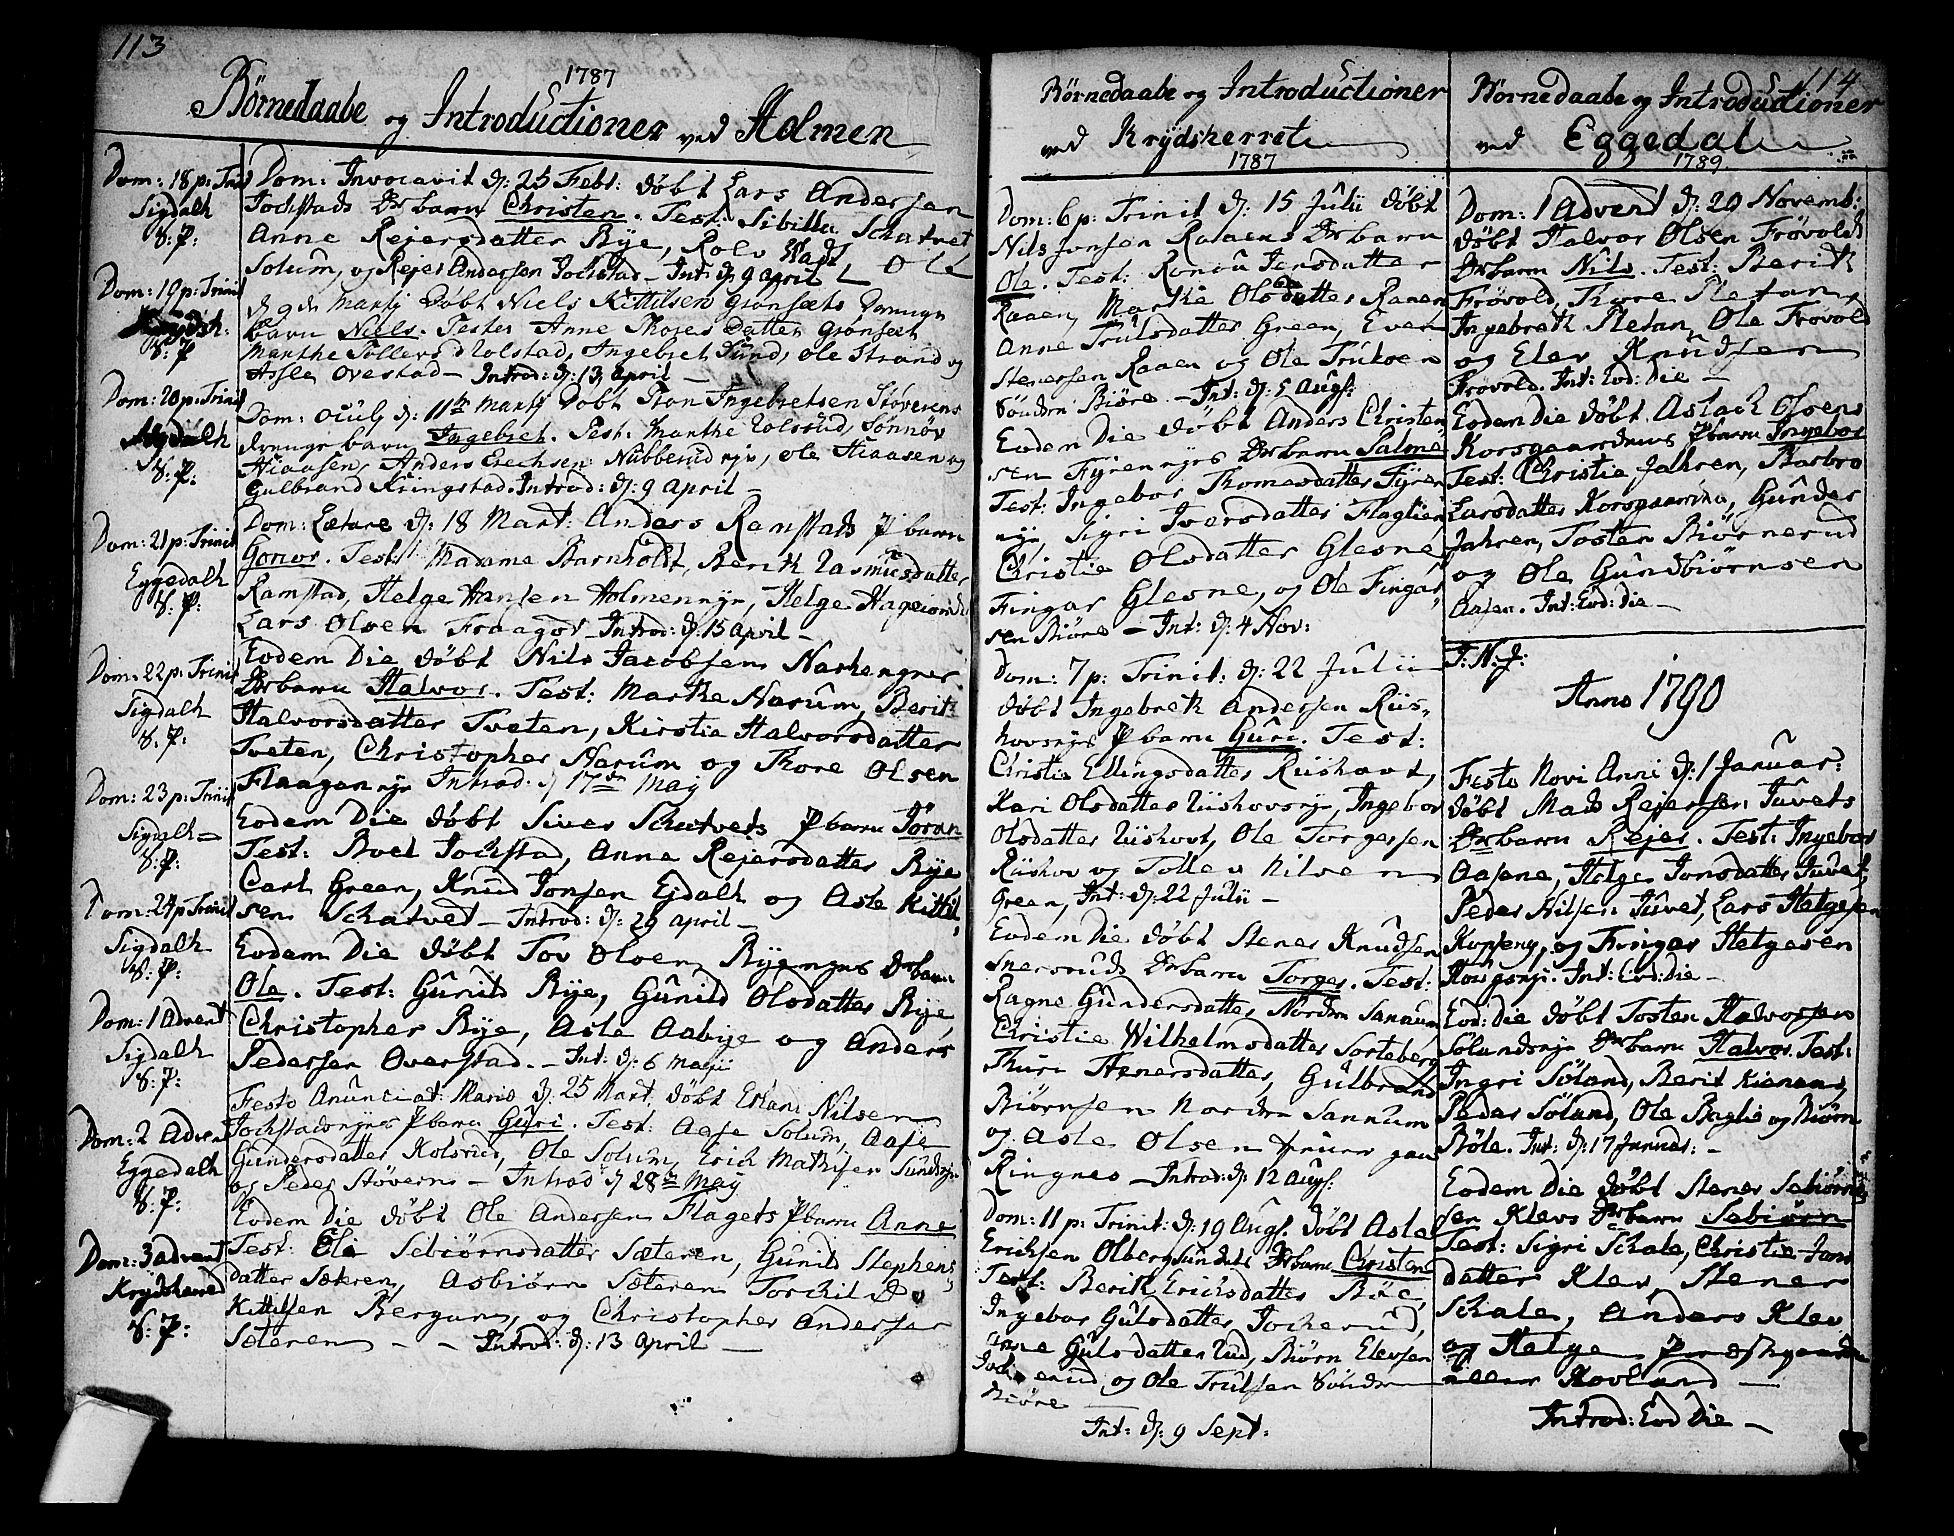 113
1787
Børnedaabe og Introductioner ved Holmen
Dom: 18 p: Trinit
Sigdalh
S: P:
Dom: 19 p: Trinit
Krydsh:
S: P
Dom: 20 p: Trinit
Sigdalh
S: P:
Dom: 21 p: Trinit
Eggedalh
S: P:
Dom: 22 p: Trinit
Sigdalh
S: P:
Dom: 23 p: Trinit
Sigdalh
S: P:
Dom: 24 p Trinit
Sigdalh
S: P:
Dom: 1 Advent
Sigdalh
S: P:
Dom: 2 Advent
Eggedalh
S: P:
Dom: 3 advent
Krydsherred
S: P:
Dom: Invocavit d: 25 Febr: døbt Lars Andersen
Jochstads barn Christen. Test: Sibilla Schatvet
Anne Rejersdatter Bye, Rolv
Solum, og Rejer Andersen Jochstad – Int: d: 9 april
Marty døbt Niels Kittilsens Grønsæts
barn Niels. Testes Anne Thoresdatter Grønsæt
Marthe Tollersd Ingebret Sund, Ole Strand og
Asle Ovestad – Introd: d: 13 april –
Dom: Oculj d: 11te Martj Døbt Ingebretsen Støverens
barn Ingebret. Test: Marthe Sønnøv
Hiaasen, Anders Erichsen Nubberud Ole Hiaasen og
Gulbrand Kringstad. Introd: d: 9 april –
Dom: Lætare d: 18 Mart: Anders Ramstads P barn
Gonor. Test: Madame Barnholdt, Berit Rasmusdatter
Ramstad, Helge Hansen Holmennye, Helge
Lars Olsen Fraagot – Introd: d: 15 april –
Eodem Die døbt Nils Jacobsen
barn Halvor. Test: Marthe Narum, Berit
Halvorsdatter Tveten, Kirstie Halvorsdatter
Tveten, Christopher Narum og Thore Olsen
Flaagan Introd. d 17de May
Eodem Die døbt Siver Schatvets P barn Jøran
Test: Boel Jochstad, Anne Rejersdatter Bye
Carl Green, Knud Jonsen Ejdalh og Asle Kittil,,
sen Schatvet – Introd: d: 29 april –
Eodem Die døbt Tov Olsen barn
Ole. Test: Gunild Bye, Gunild Olsdatter Bye,
Christopher Bye, Asle Aabye og Anders
Pedersen Overstad. – Int: d: 6 Maji
Festo Anunciat: Mariæ d: 25 Mart, døbt Erland Nilsen
P barn Guri. Test: Aase Solum, Aase
Gundersdatter Kolsrud, Ole Solum, Erich Mathisen
og Peder Støvern – Introd d 28de May
Eodem Die døbt Ole Andersen Flagets P barn Anne
Test: Ole Sebiørnsdatter Sæteren, Gunild Stephens,,
datter Sæteren, Asbiørn Sæteren Torchild
Kittilsen Bergan, og Christopher Andersen
Sæteren – – Introd: d: 13 april –
Børnedaabe og Introductioner
ved Krydsherret
1787
Dom: 6 p: Trinit d: 15 Julii døbt
Nils Jonsen Raaens barn
Ole. Test: Jensdatter
Raaen, Marthe Olsdatter Raaen
Anne Trulsdatter Green, Even
Stenersen Raaen og Ole Trulsen
Søndre Biøre – Int: d: 5 Augs:
Eodem Die døbt Anders Christen
sen barn Salme
Test: Ingebor Thomesdatter
Sigri Iversdatter
Christie Olsdatter Glesne,
Fingar Glesne, og Ole Fingar
sen Biøre – Int: d: 4 Nov:
Dom: 7 p: Trinit: d: 22 Julii
døbt Ingebreth Andersen Riis,,
P barn Guri. Test:
Christie Ellingsdatter
Kari Olsdatter Ingebor
Olsdatter Ole Torgersen
Riishov og Tollev Nilsen
Green, Int: d: 22 Julii –
Eodem Die døbt Stener Knudsen
Snersruds barn Torger. Test:
Ragne Gundersdatter, Nordre Sanum
Christie Wilhelmsdatter Sorteberg
Thuri Henersdatter, Gulbrand
Biørnsen Nordre Sannum
og Asle Olsen
Ringnes – Introd: d: 12 Augs:
Dom: 11 p: Trinit: d: 19 Augs. døbt Asle
Erichsen barn Christen
Test: Berit Erichsdatter Bøe,
Ingebor Gulsdatter Jocherud,
Anne Gulsdatter Biørn Elevsen
Jocherud og Ole Trulsen Søndre
Biøre
Int: d: 9 Sept:
114
Børnedaabe og Introductioner
ved Eggedal
1789
Dom: 1 Advent d: 29 Novemb:
døbt Halvor Olsen Frøvolds
barn Nils. Test: Berith
Frøvold, Thore Pletan,
Ingebreth Pletan, Ole Frøvold
og Elev Knudsen
Frøvold. Int: Eod: Die –
Eodem Die døbt Aslach Olsens
P barn Ingebor
Test: Christie Jahren, Barbro
Larsdatter Gunder
Jahren, Tosten Biørnerud
og Ole Gundbiørnsen
Aasen. Int: Eod: Die –
I: N: J:
Anno 1790
Festo Novi Anni d: 1 Januar:
døbt Mads Rejersen Juvets
barn Rejer. Test: Ingebor
Aasene, Helge Jonsdatter Juvet,
Peder Nilsen Juvet, Lars Helgesen
og Fingar Helgesen
Int: Eod: Die –
Eod: Die døbt Tosten Halvorsen
barn Halvor. Test:
Ingri Søland, Berit
Peder Søland, Ole Baglie og Biørn
Bøle. Int: d: 17 Januar: –
Eodem Die døbt Stener Sebiørn
sen Klevs barn Sebiørn
Test: Sigri Schale, Christie Jans
datter Klev, Stener
Schale, Anders Klev
og Helge Præstegaarden
eller Hovland –
Introd: Eod Die –